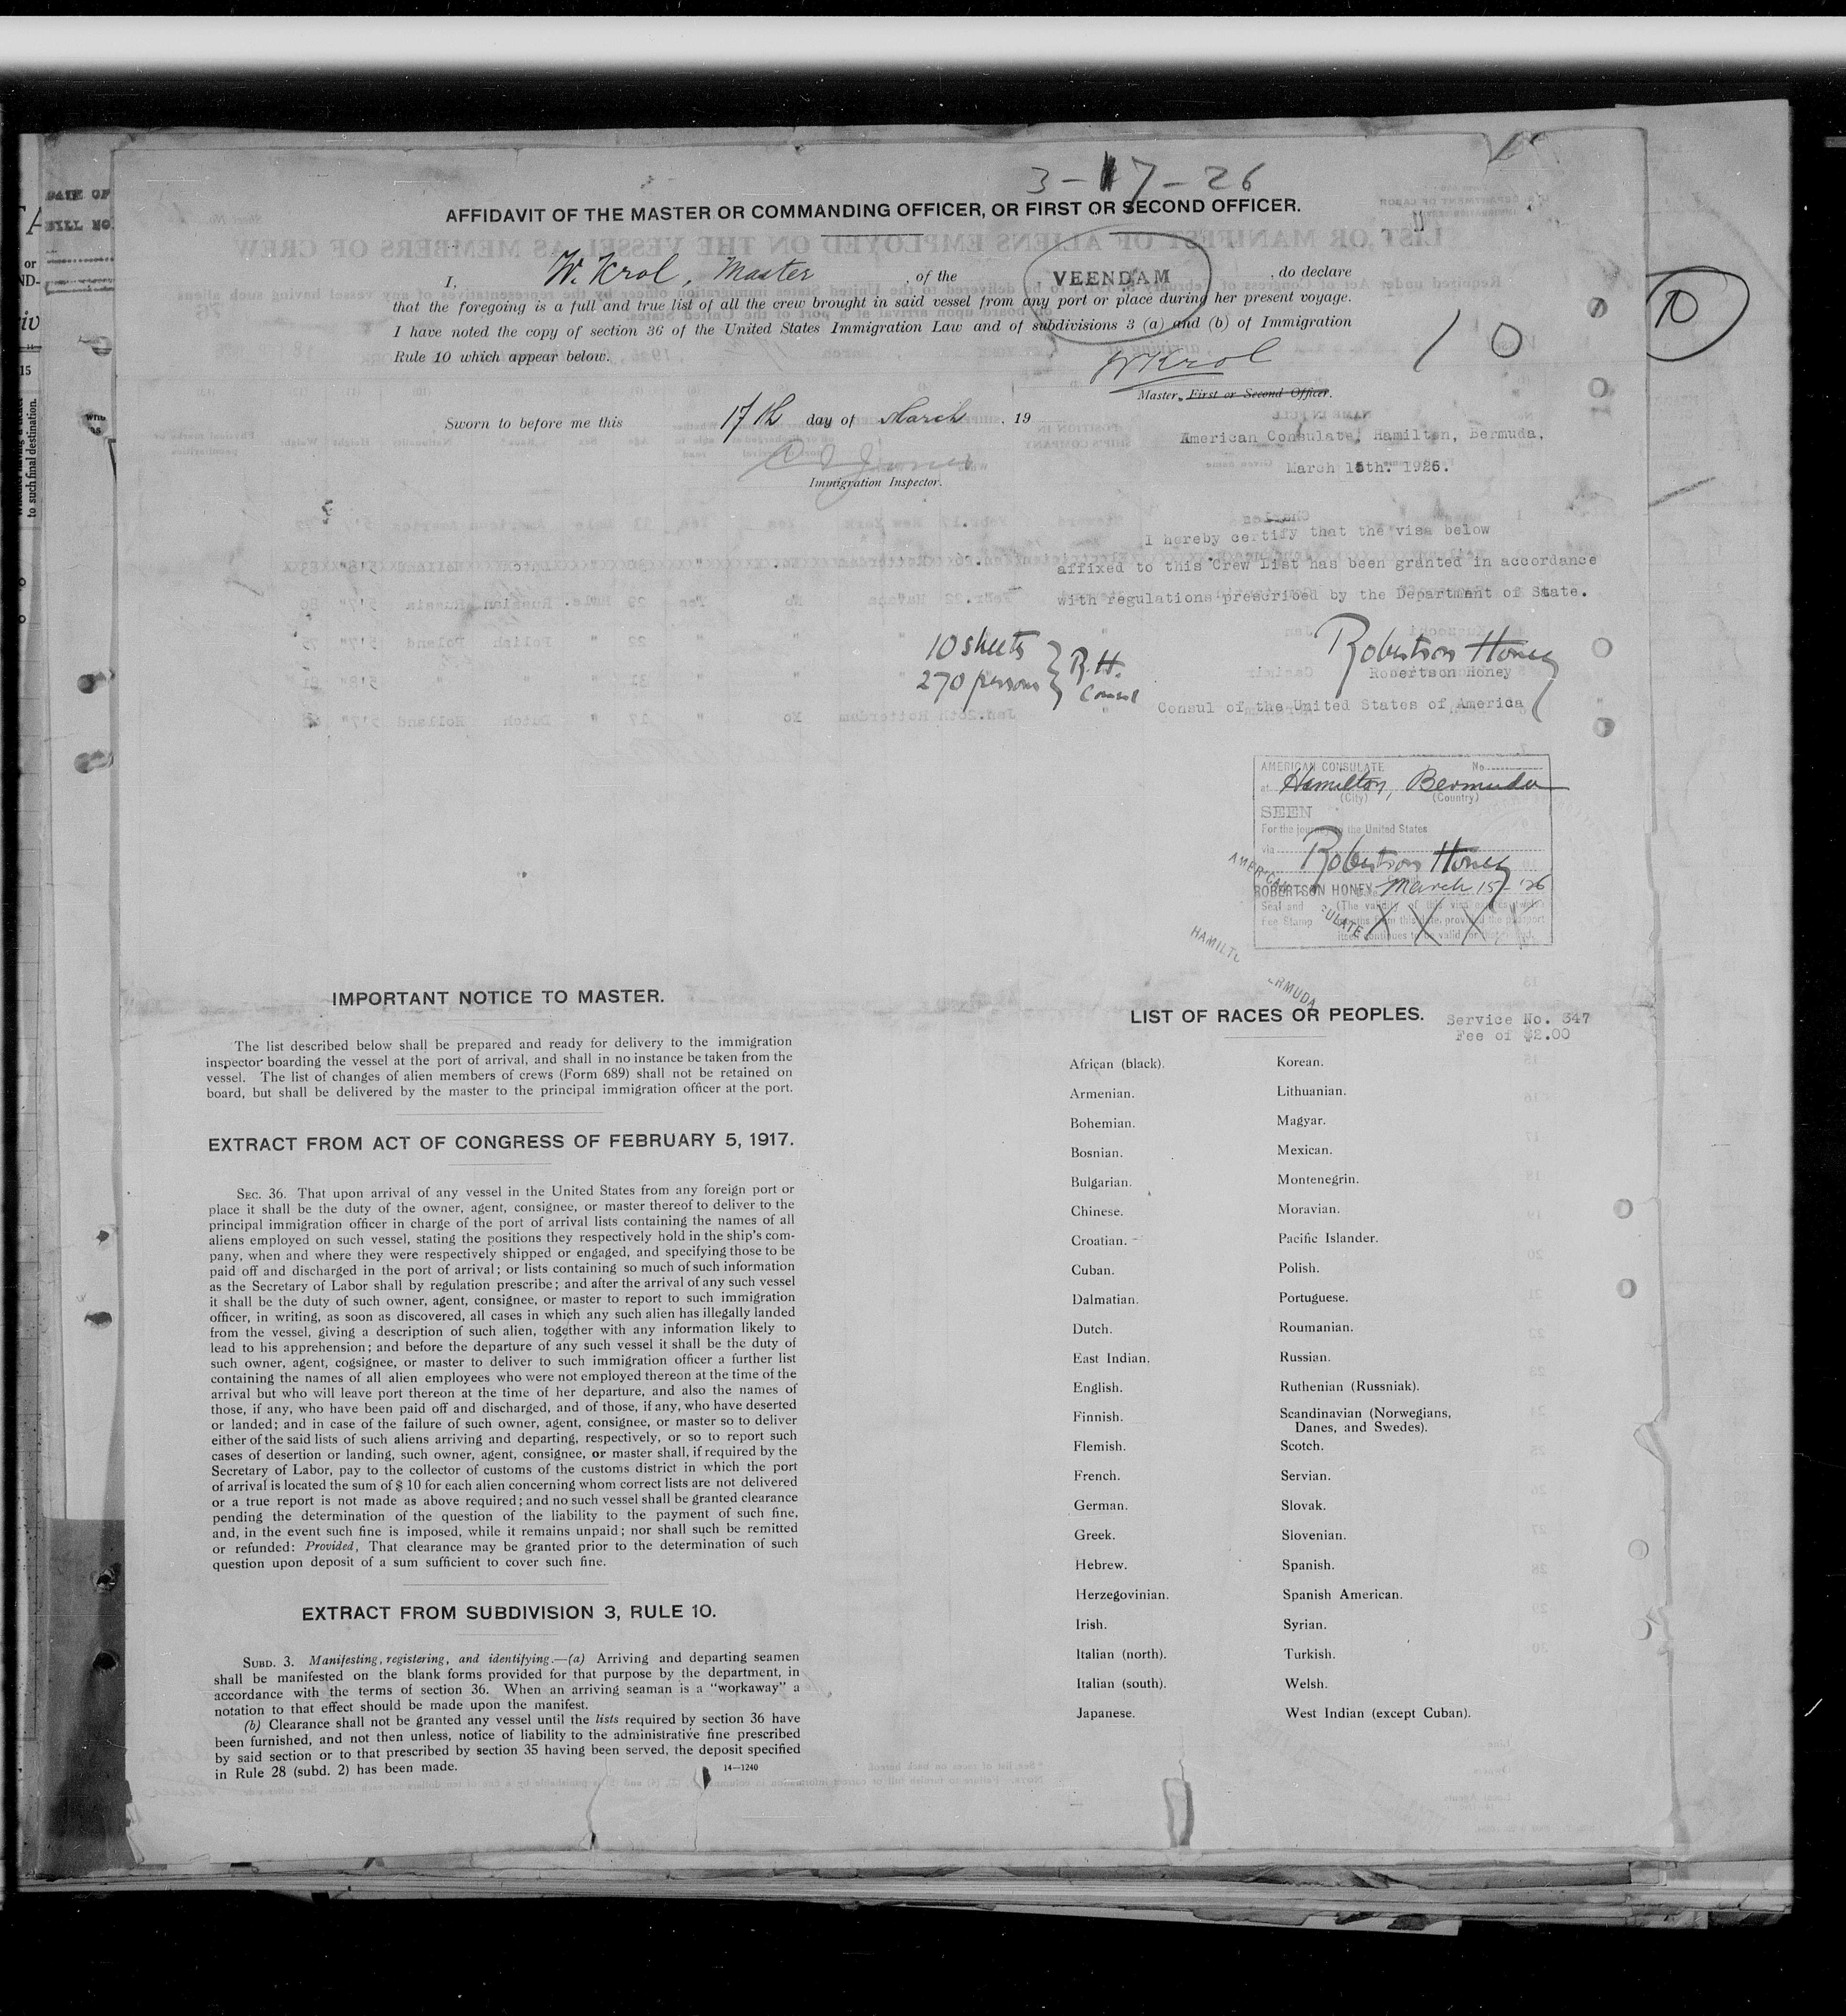 3-17-26
AFFIDAVIT OF THE MASTER OR COMMANDING OFFICER, OR FIRST OR SECOND OFFICER.
I, W. Krol, Master, of the VEENDAM, do declare
that the foregoing is a full and true list of all the crew brought in said vessel from any port or place during her present voyage.
I have noted the copy of section 36 of the United States Immigration Law and of subdivisions 3 (a) and (b) of Immigration
Rule 10 which appear below.
10
10
W Krol
Master, First or Second Officer.
Sworn to before me this 17th day of March, 19
Immigration Inspector.
American Consulate, Hamilton, Bermuda,
March 15th. 1926.
I hereby certify that the visa below
affixed to this Crew List has been granted in accordance
with regulations prescribed by the Department of State.
10 sheets
270 persons } R.H. Consul
Robertson Honey
Robertson Honey
Consul of the United States of America
AMERICAN CONSULATE No.
at Hamilton, Bermuda
(City) (Country)
SEEN
For the journey to the United States
via
Robertson Honey
ROBERTSON HONEY March 15-'26
Seal and
Fee Stamp
(The validity of this visa
months from this date, provided the passport
itself continues to be valid for
XXXX
AMERICAN
SULATE
HAMILT
ERMUDA
Service No. 347
Fee of $2.00
IMPORTANT NOTICE TO MASTER.
The list described below shall be prepared and ready for delivery to the immigration
inspector boarding the vessel at the port of arrival, and shall in no instance be taken from the
vessel. The list of changes of alien members of crews (Form 689) shall not be retained on
board, but shall be delivered by the master to the principal immigration officer at the port.
EXTRACT FROM ACT OF CONGRESS OF FEBRUARY 5, 1917.
SEC. 36. That upon arrival of any vessel in the United States from any foreign port or
place it shall be the duty of the owner, agent, consignee, or master thereof to deliver to the
principal immigration officer in charge of the port of arrival lists containing the names of all
aliens employed on such vessel, stating the positions they respectively hold in the ship's com-
pany, when and where they were respectively shipped or engaged, and specifying those to be
paid off and discharged in the port of arrival; or lists containing so much of such information
as the Secretary of Labor shall by regulation prescribe; and after the arrival of any such vessel
it shall be the duty of such owner, agent, consignee, or master to report to such immigration
officer, in writing, as soon as discovered, all cases in which any such alien has illegally landed
from the vessel, giving a description of such alien, together with any information likely to
lead to his apprehension; and before the departure of any such vessel it shall be the duty of
such owner, agent, cogsignee, or master to deliver to such immigration officer a further list
containing the names of all alien employees who were not employed thereon at the time of the
arrival but who will leave port thereon at the time of her departure, and also the names of
those, if any, who have been paid off and discharged, and of those, if any, who have deserted
or landed; and in case of the failure of such owner, agent, consignee, or master so to deliver
either of the said lists of such aliens arriving and departing, respectively, or so to report such
cases of desertion or landing, such owner, agent, consignee, or master shall, if required by the
Secretary of Labor, pay to the collector of customs of the customs district in which the port
of arrival is located the sum of $ 10 for each alien concerning whom correct lists are not delivered
or a true report is not made as above required; and no such vessel shall be granted clearance
pending the determination of the question of the liability to the payment of such fine,
and, in the event such fine is imposed, while it remains unpaid; nor shall such be remitted
or refunded: Provided, That clearance may be granted prior to the determination of such
question upon deposit of a sum sufficient to cover such fine.
EXTRACT FROM SUBDIVISION 3, RULE 10.
SUBD. 3. Manifesting, registering, and identifying.—(a) Arriving and departing seamen
shall be manifested on the blank forms provided for that purpose by the department, in
accordance with the terms of section 36. When an arriving seaman is a "workaway" a
notation to that effect should be made upon the manifest.
(b) Clearance shall not be granted any vessel until the lists required by section 36 have
been furnished, and not then unless, notice of liability to the administrative fine prescribed
by said section or to that prescribed by section 35 having been served, the deposit specified
in Rule 28 (subd. 2) has been made.
14—1240
LIST OF RACES OR PEOPLES.
African (black).
Armenian.
Bohemian.
Bosnian.
Bulgarian.
Chinese.
Croatian.
Cuban.
Dalmatian.
Dutch.
East Indian.
English.
Finnish.
Flemish.
French.
German.
Greek.
Hebrew.
Herzegovinian.
Irish.
Italian (north).
Italian (south).
Japanese.
Korean.
Lithuanian.
Magyar.
Mexican.
Montenegrin.
Moravian.
Pacific Islander.
Polish.
Portuguese.
Roumanian.
Russian.
Ruthenian (Russniak).
Scandinavian (Norwegians,
Danes, and Swedes).
Scotch.
Servian.
Slovak.
Slovenian.
Spanish.
Spanish American.
Syrian.
Turkish.
Welsh.
West Indian (except Cuban).